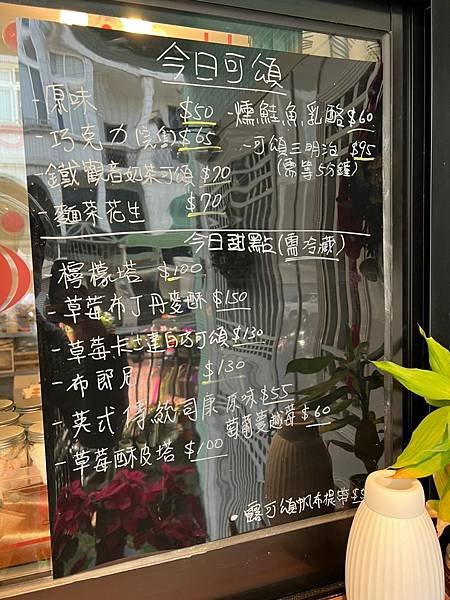 今日可頌
-原味 $50
-巧克力 $65
-鐵觀音奶茶可頌 $70
-麵茶花生 $70
-燻鮭魚乳酪 $60
-可頌三明治 $95
(需等5分鐘)
今日甜點(需冷藏)
-檸檬塔 $100
-草莓布丁丹麥酥 $150
-草莓卡士達白巧可頌 $130
-布郎尼 $130
-英式傳統司康 原味 $55
葡萄蔓越莓 $60
-草莓酥皮塔 $100
可頌帆布提袋